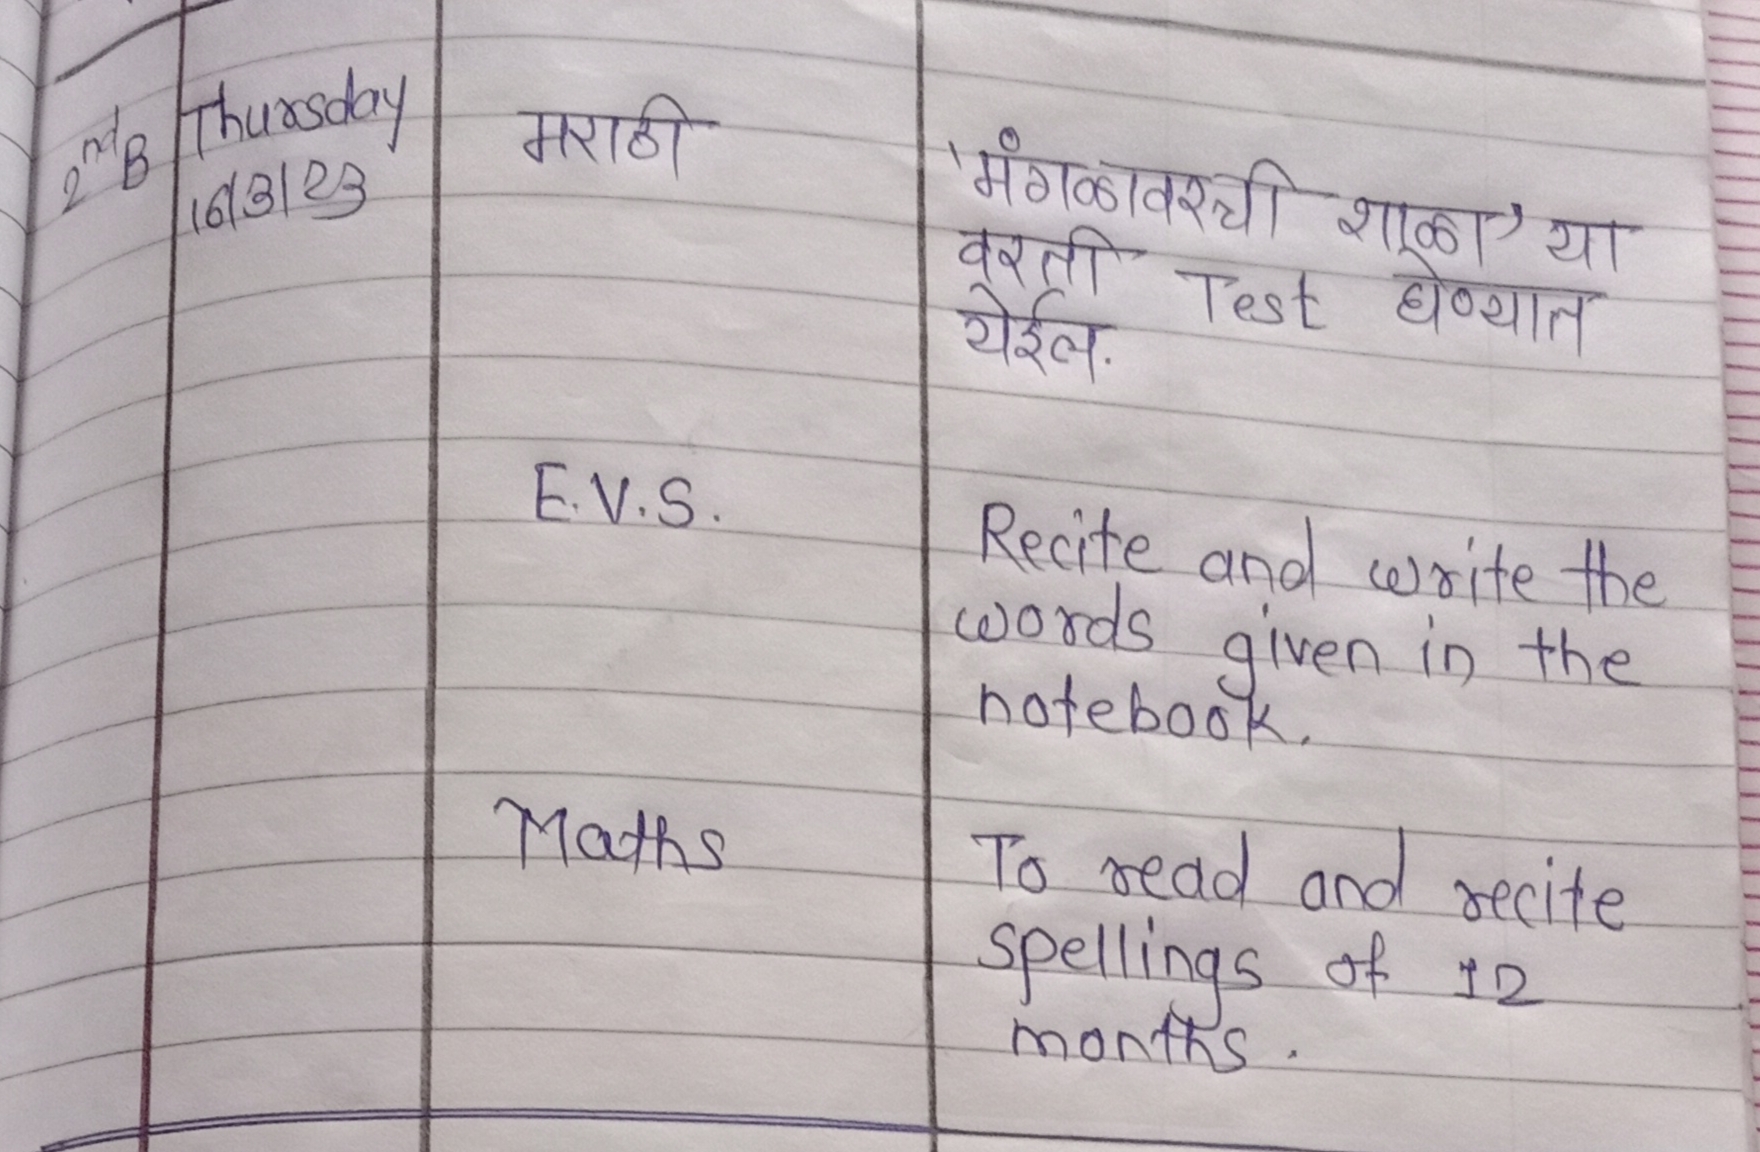 2nd B
Thursday
16/3/23
मराठी
'मंगळावरची शाळा' या
वरती Test घेण्यात
येईल.
E.V.S.
Recite and write the
words given in the
notebook.
Maths
To read and recite
spellings of 12
months.